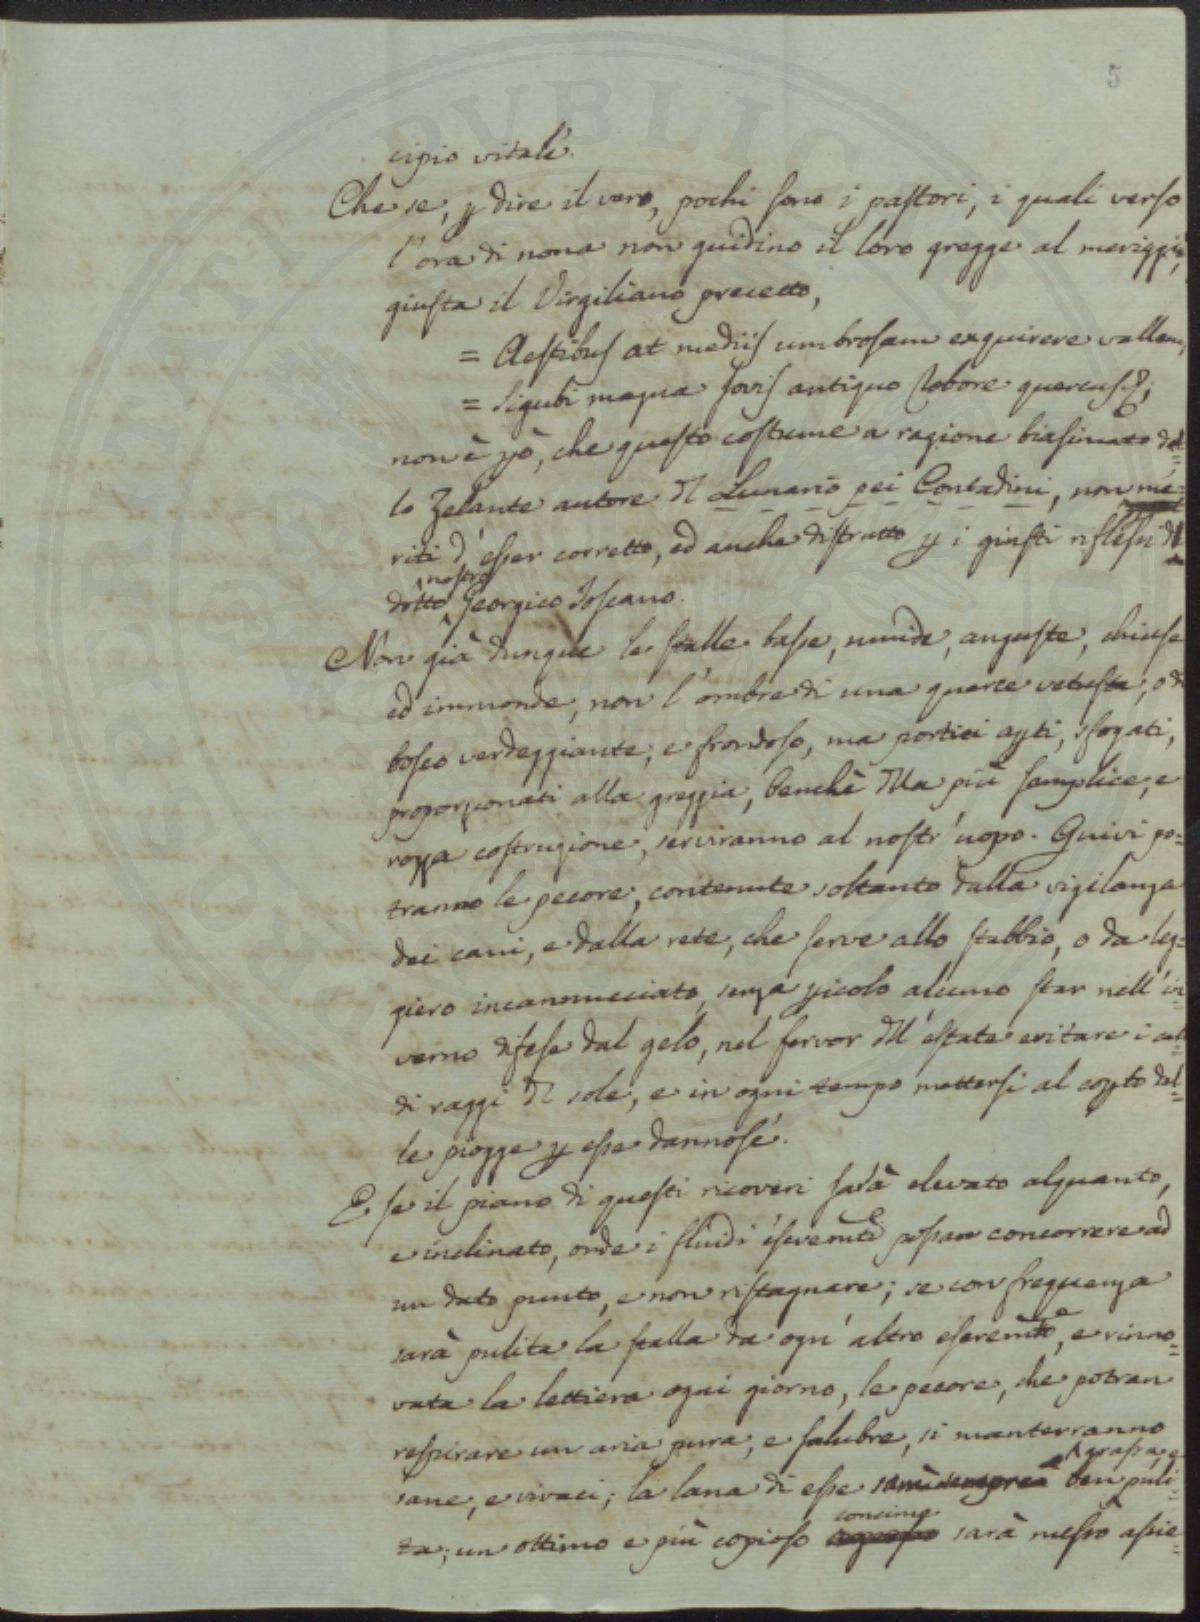 5
cipio vitale.
Che se, p dire il vero, pochi sono i pastori, i quali verso
l'ora di nona non guidino il loro gregge al meriggio,
giusta il Virgiliano precetto,
= Aestibus at mediis umbrosam exquirere vallem,
= Sicubi magna Jovis antiquo robore quercus &;
non è pò, che questo costume a ragione biasimato dal=
lo Zelante autore dl Lunario pei Contadini, non me=
riti d'esser corretto, ed anche distrutto p i giusti riflessi dl
dotto nostro Georgico Toscano.
Non già dunque le stalle basse, umide, anguste, chiuse
ed immonde, non l'ombre di una querce vetusta, o di
bosco verdeggiante, e frondoso, ma portici apti, sfogati,
proporzionati alla greggia, benchè dlla più semplice, e
rozza costruzione, serviranno al nostr'uopo. Quivi po=
tranno le pecore, contenute soltanto dalla vigilanza
dei cani, e dalla rete, che serve allo stabbio, o da leg=
giero incannucciato, senza picolo alcuno star nell'in=
verno difese dal gelo, nel fervor dll'estate evitare i cal=
di raggi dl sole, e in ogni tempo mettersi al copto dal=
le piogge p esse dannose.
E se il piano di questi ricoveri sarà elevato alquanto,
e inclinato, onde i fluidi possan concorrere ad
un dato punto, e non ristagnare; se con frequenza
sarà pulita la stalla da ogn'altro , e rinno=
vata la lettiera ogni giorno, le pecore, che potran
respirare un aria pura, e salubre, si manterranno
sane, e vivaci; la lana di esse grassa, e ben puli=
ta; un ottimo e più copioso concime sarà messo assie=